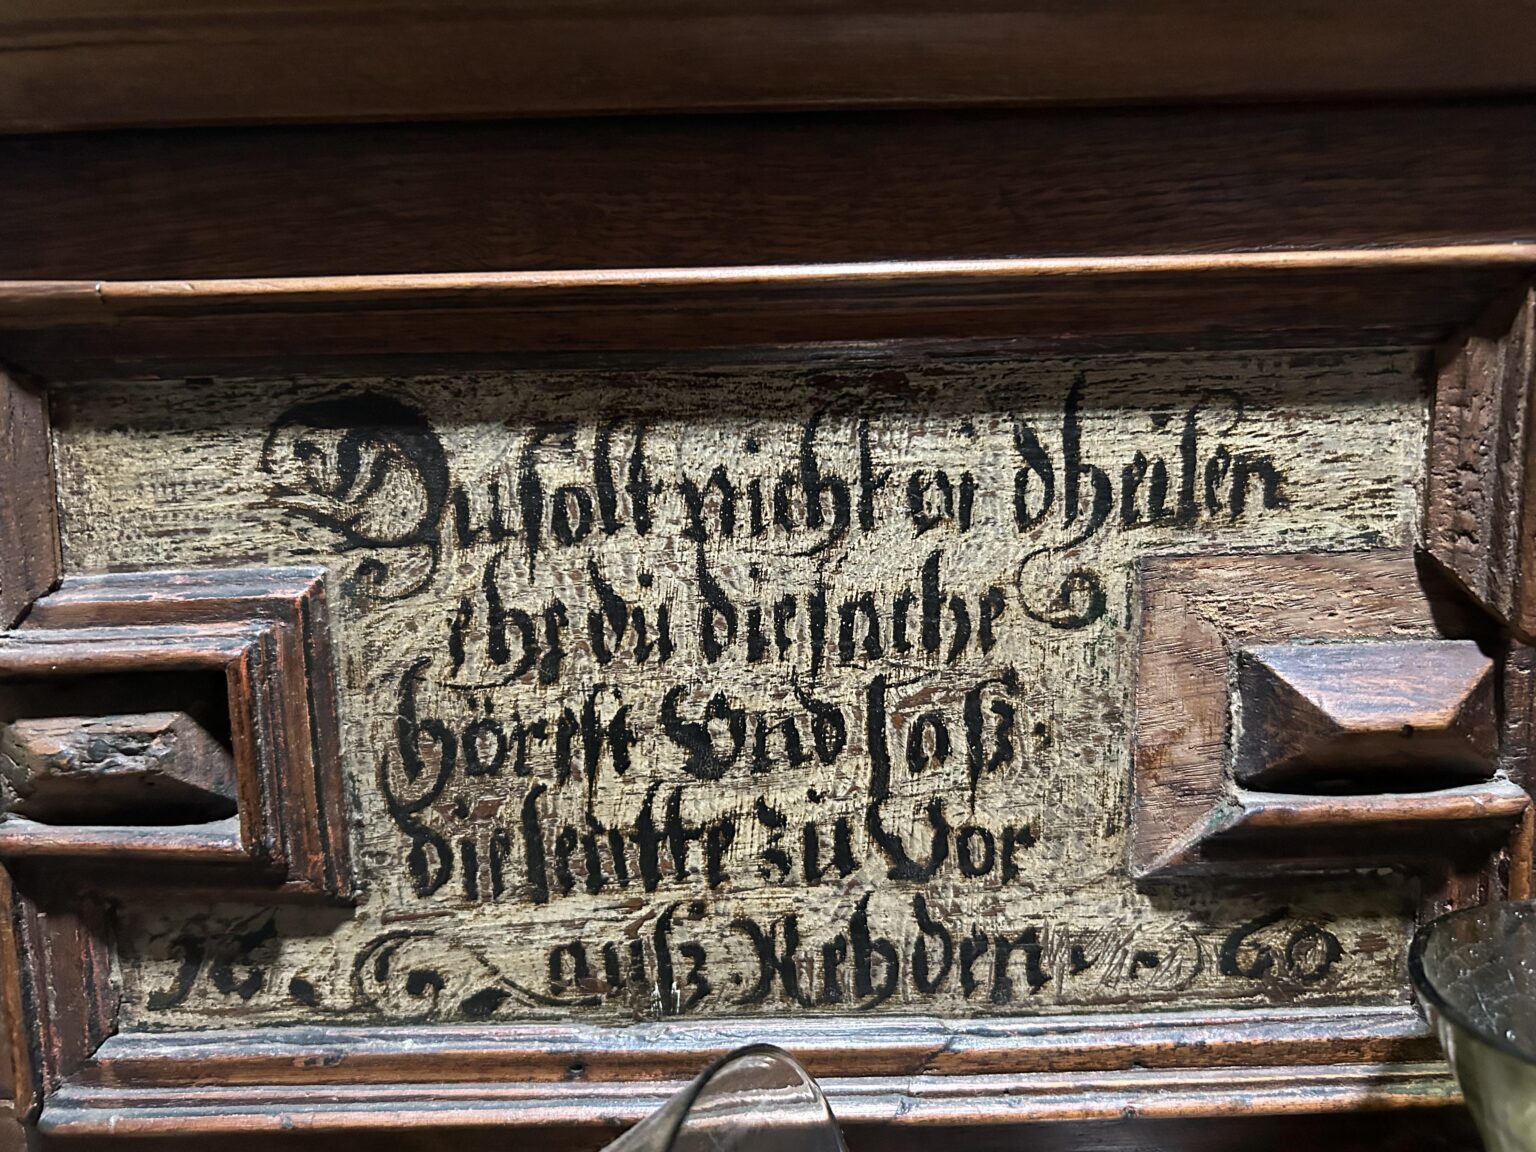 Du solt nicht ev dheilen
ehe du die sache
hörest Vnd laß
die leutte zu Vor
16. außz Rehden 60